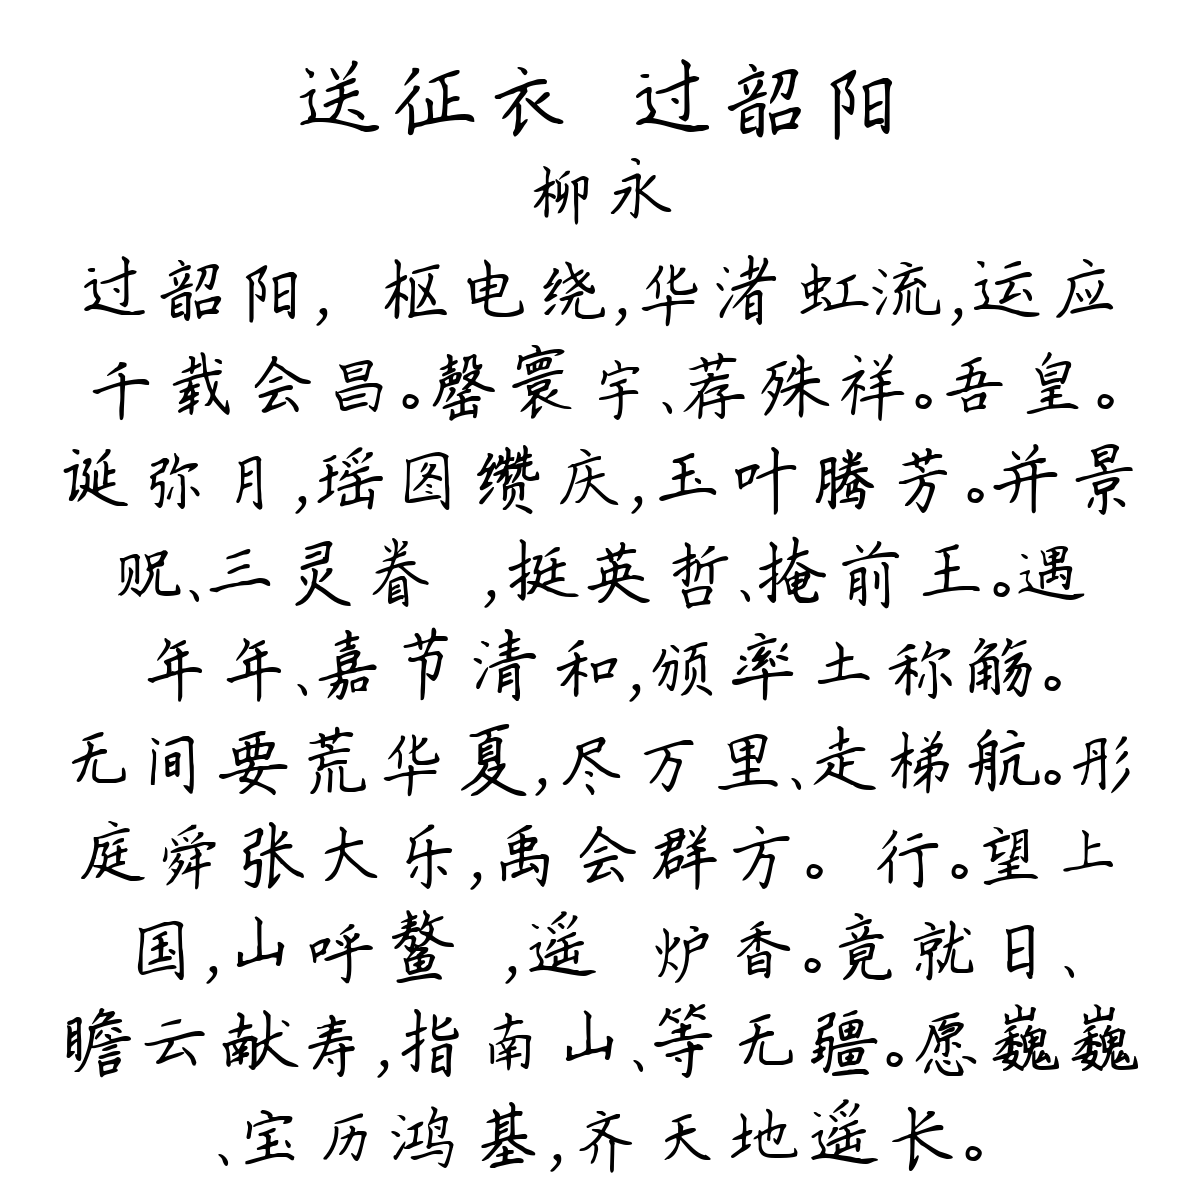 送征衣 过韶阳
柳永
过韶阳, 枢电绕,华渚虹流,运应
千载会昌。罄寰宇、荐殊祥。吾皇。
诞弥月,瑶图缵庆,玉叶腾芳。并景
贶、三灵眷 ,挺英哲、掩前王。遇
年年、嘉节清和,颁率土称觞。
无间要荒华夏,尽万里、走梯航。彤
庭舜张大乐,禹会群方。 行。望上
国,山呼鳌 ,遥 炉香。竟就日、
瞻云献寿,指南山、等无疆。愿巍巍
、宝历鸿基,齐天地遥长。